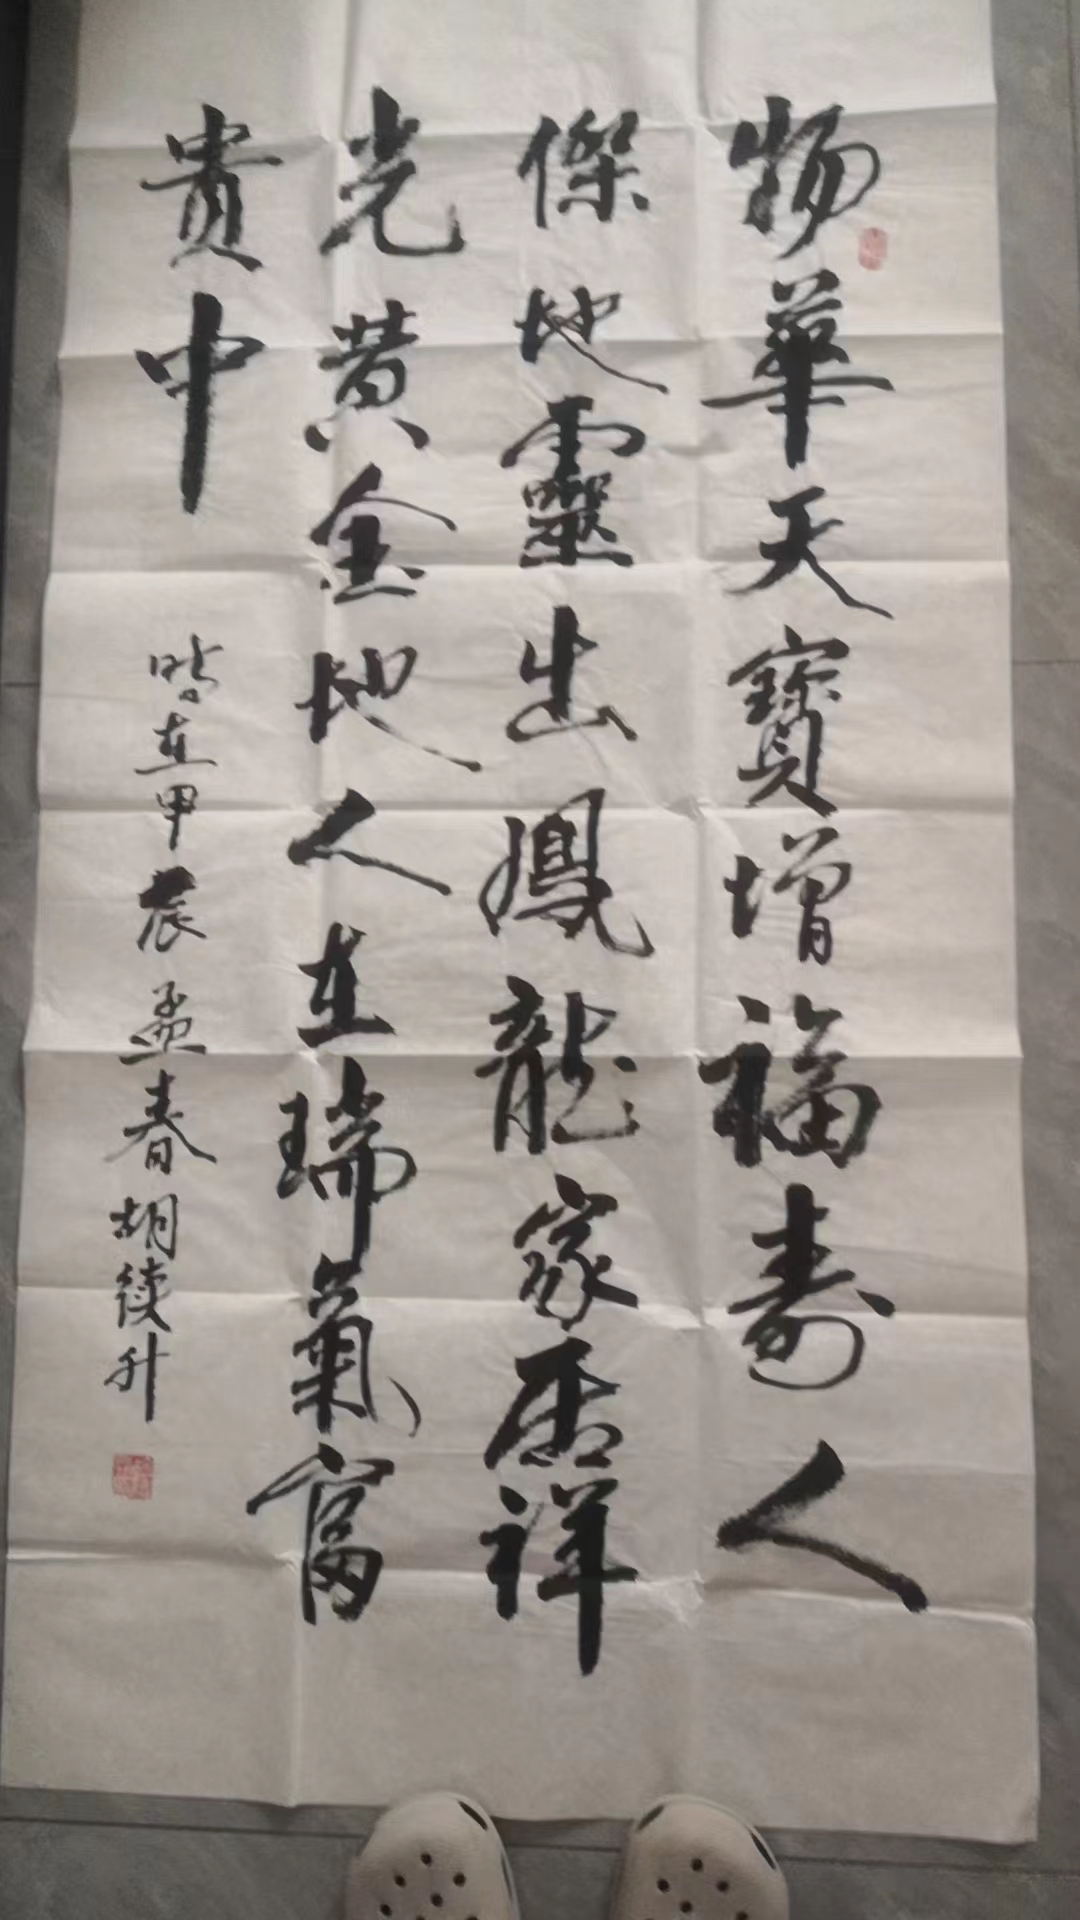 物華天寶增福壽人
傑地靈出鳳龍家居祥
光黄金地人在瑞氣富
貴中
時在甲辰孟春胡续升